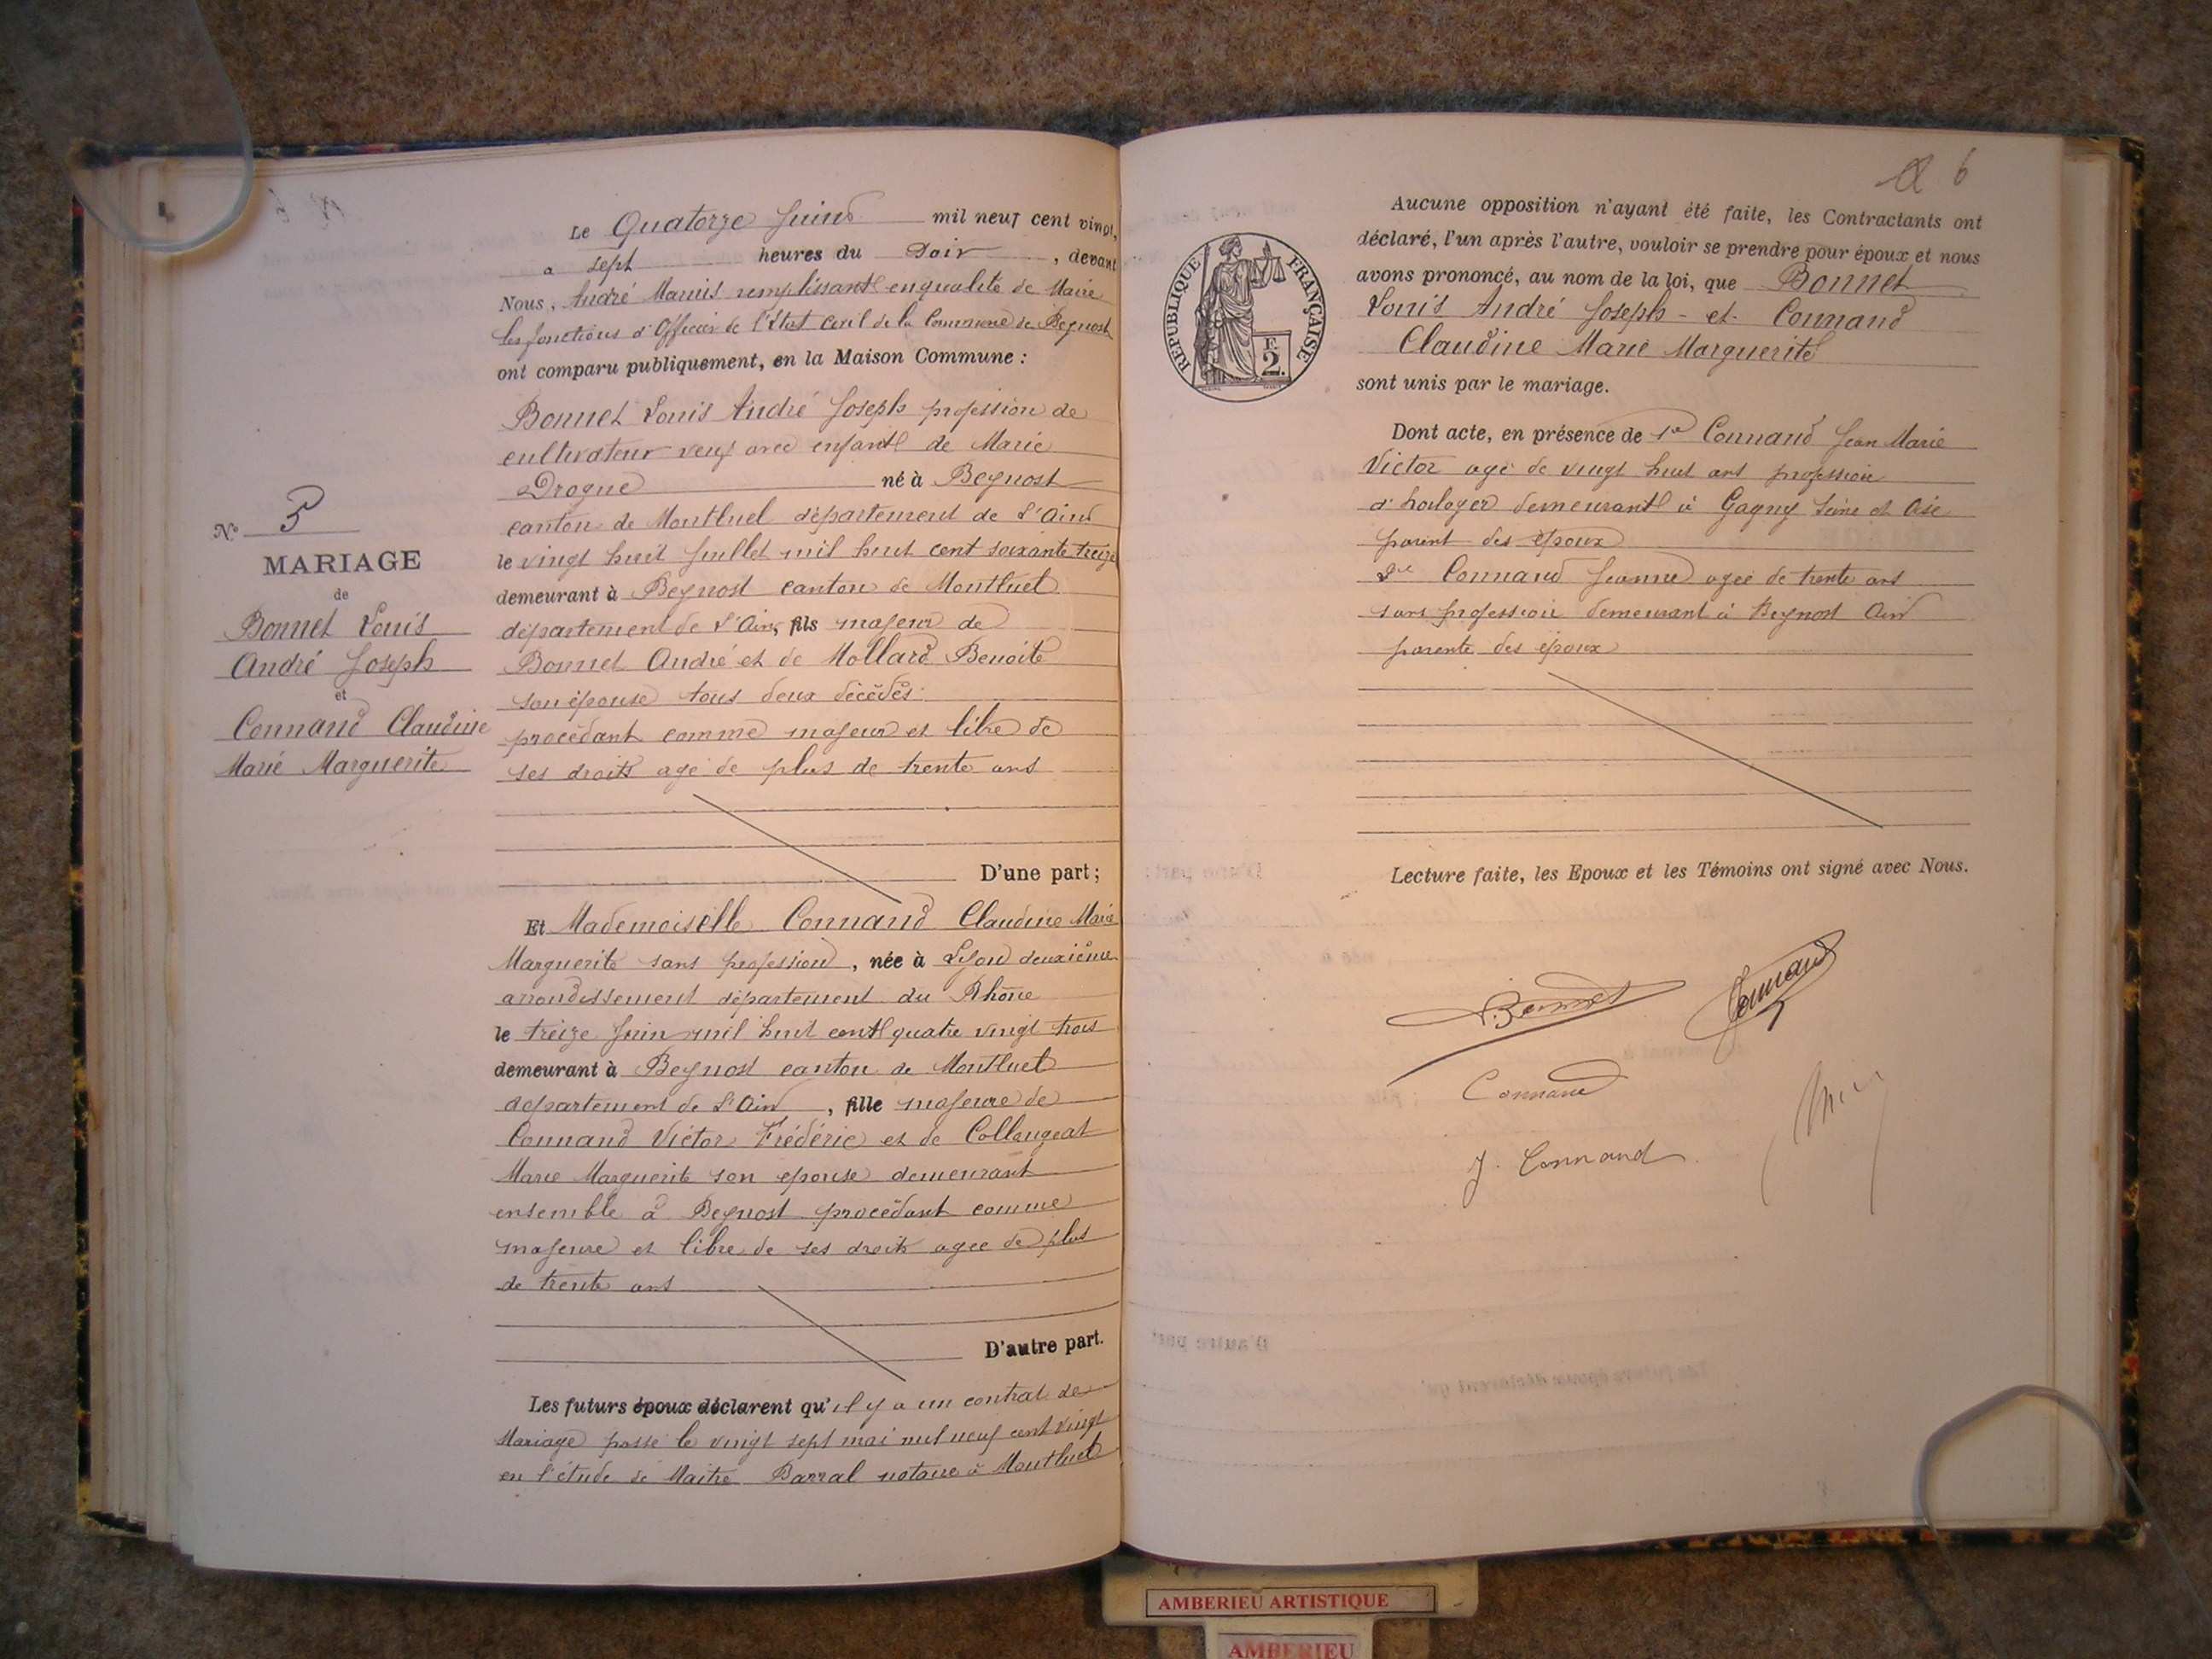 Le Quatorze Juin mil neuf cent vingt,
a sept heures du Soir, devant
Nous, André remplissant en qualité de Maire
les fonctions d'Officier de l'Etat Civil de la Commune de Beynost
ont comparu publiquement, en la Maison Commune :
Bonnet Louis André Joseph profession de
cultivateur veuf avec enfant de Marie
Drogue né à Beynost
canton de Montluel département de l'Ain
le vingt huit Juillet mil huit cent soixante treize
demeurant à Beynost canton de Montluel
département de l'Ain, fils majeur de
Bonnet André et de Mollard Benoite
son épouse tous deux décédés
procédant comme majeur et libre de
ses droits agé de plus de trente ans
D'une part ;
Nº 5
MARIAGE
de
Bonnet Louis
André Joseph
et
Connand Claudine
Marie Marguerite
Et Mademoiselle Connand Claudine Marie
Marguerite sans profession, née à Lyon deuxième
arrondissement département du Rhône
le treize Juin mil huit cent quatre vingt trois
demeurant à Beynost canton de Montluel
département de l'Ain, fille majeure de
Connand Victor Frédéric et de Collangeat
Marie Marguerite son epouse demeurant
ensemble à Beynost procédant comme
majeure et libre de ses droits agee de plus
de trente ans
D'autre part.
Les futurs époux déclarent qu'il y a un contrat de
Mariage passé le vingt sept mai mil neuf cent vingt
en l'étude de Maitre Barral notaire à Montluel
6
REPUBLIQUE FRANÇAISE
F.
2.
Aucune opposition n'ayant été faite, les Contractants ont
déclaré, l'un après l'autre, vouloir se prendre pour époux et nous
avons prononcé, au nom de la loi, que Bonnet
Louis André Joseph - et Connand
Claudine Marie Marguerite
sont unis par le mariage.
Dont acte, en présence de 1er Connand Jean Marie
Victor agé de vingt huit ans profession
d'horloger demeurant à Gagny Seine et Oise
parent des époux
2e Connand Jeanne agée de trente ans
sans profession demeurant à Beynost Ain
parente des époux
Lecture faite, les Epoux et les Témoins ont signé avec Nous.
Bonnet
Connand
Connand
J. Connand
AMBERIEU ARTISTIQUE
AMBERIEU